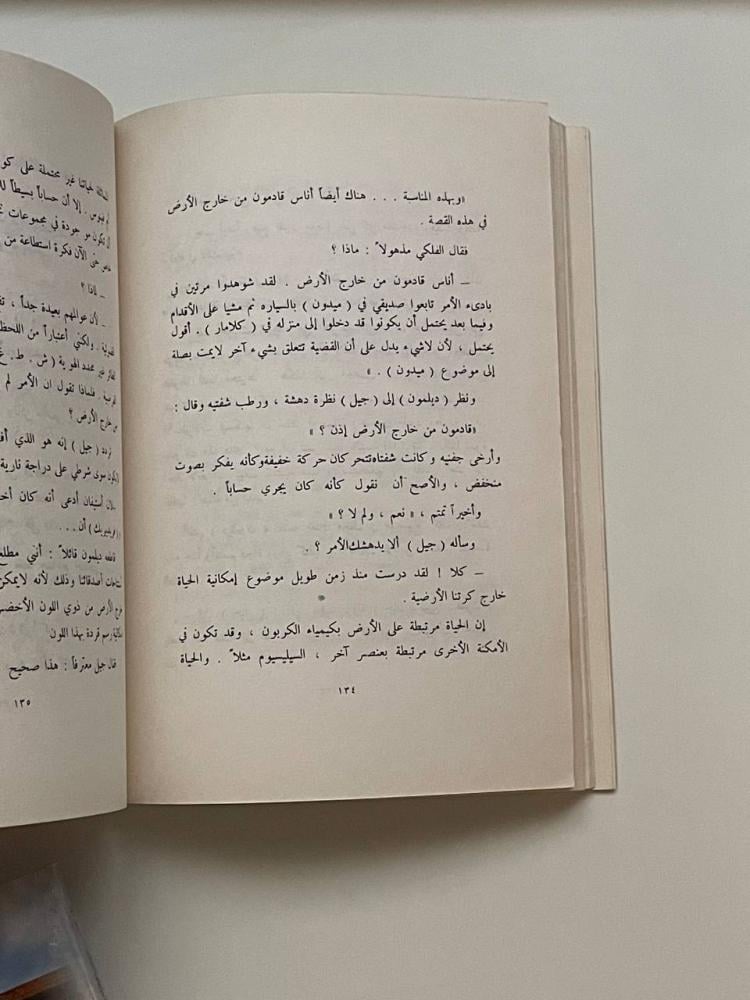 «وبهذه المناسبة . . . هناك أيضاً أناس قادمون من خارج الأرض
في هذه القصة .
فقال الفلكي مذهولاً : ماذا ؟
ـ أناس قادمون من خارج الأرض . لقد شوهدوا مرتين في
بادىء الأمر تابعوا صديقي في ( ميدون ) بالسياره ثم مشيا على الأقدام
وفيما بعد يحتمل أن يكونوا قد دخلوا إلى منزله في ( كلامار ) . أقول
يحتمل ، لأن لاشيء يدل على أن القضية تتعلق بشيء آخر لايمت بصلة
إلى موضوع ( ميدون ) . »
ونظر ( ديلمون ) إلى ( جيل ) نظرة دهشة ، ورطب شفتيه وقال :
«قادمون من خارج الأرض إذن ؟ »
وأرخى جفنيه وكانت شفتاه تتحركان حركة خفيفة وكأنه يفكر بصوت
منخفض ، والأصح أن نقول كأنه كان يجري حساباً .
وأخيراً تمتم ، « نعم ، ولم لا ؟ »
وسأله ( جيل ) ألا يدهشك الأمر ؟ .
ـ كلا ! لقد درست منذ زمن طويل موضوع إمكانية الحياة
خارج كرتنا الأرضية .
إن الحياة مرتبطة على الأرض بكيمياء الكربون ، وقد تكون في
الأمكنة الأخرى مرتبطة بعنصر آخر ، السيليسيوم مثلاً . والحياة
١٣٤
لحياتنا غير محتملة على
. إلا أن حساباً بسيطاً
موجودة في مجموعات
حتى الآن فكرة استطاعة من
ـ لماذا ؟
ـ لأن عوالمهم بعيدة جداً ،
. ولكني أعتباراً من
غير محدد الهوية ( ش . ط .
. فلماذا تقول ان الأمر لم
خارج الأرض ؟
( جيل ) إنه هو الذي
سوى شرطي على دراجة نارية
أستيفان أدعى أنه كان
أن . . .
ديلمون قائلاً : أنني
أصدقائنا وذلك لأنه
الأرض من ذوي اللون
رسم قردة بهذا اللون
قال جيل معترفاً : هذا صحيح
١٣٥